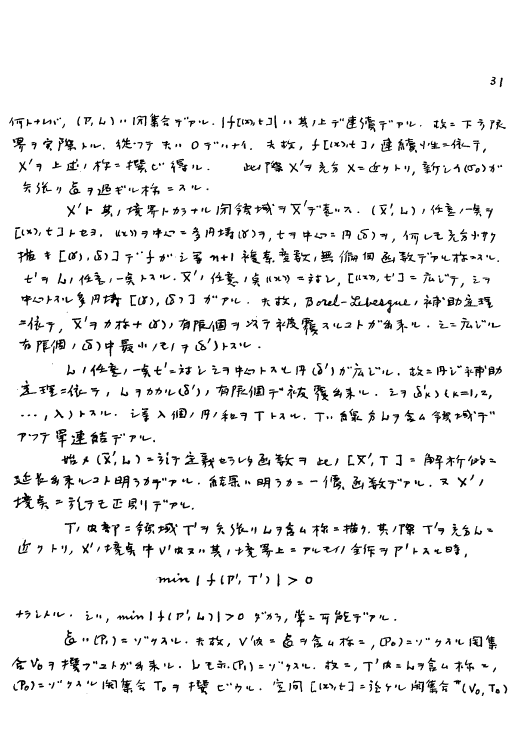 31
何トナレバ, (P, L) ハ閉集合デアル. |f[(x), t]| ハ其ノ上デ連續デアル. 故ニ下方限
界ヲ實際トル. 從ツテ夫ハ 0 デハナイ. 夫故, f[(x), t] ノ連續性ニ依テ,
X' ヲ上述ノ様ニ撰ビ得ル. 此際 X' ヲ充分 X ニ近クトリ, 新シイ (σ₀) ガ
矢張リ ヲ過ギル様ニスル.
X' ト其ノ境界トカラナル閉領域ヲ X̄' デ表ハス. (X̄', L) ノ任意ノ一点ヲ
[(x), t] トセヨ. (x) ヲ中心ニ多円壔 (γ) ヲ, t ヲ中心ニ円 (δ) ヲ, 何レモ充分小サク
描キ [(γ), (δ)] デ f ガ n+1 複素変数ノ函数デアル様ニスル.
t' ヲ L ノ任意ノ一点トスル. X̄' ノ任意ノ点 (x) ニ対シ, [(x), t'] ニ応ジテ, シヲ
中心トスル多円壔 [(γ), (δ)] ガアル. 夫故, Borel-Lebesgue ノ補助定理
ニ依テ, X̄' ヲカ様ナ (γ) ノ有限個ヲ以テ被覆スルコトガ出来ル. シニ応ジル
有限個ノ (δ) 中最小ノモノヲ (δ') トスル.
L ノ任意ノ一点 t' ニ対シシヲ中心トスル円 (δ') ガ応ジル. 故ニ同ジ補助
定理ニ依テ, L ヲカカル (δ') ノ有限個デ被覆出来ル. シヲ (δ'κ) (κ=1, 2,
…, λ) トスル. 此等 λ 個ノ円ノ和ヲ T トスル. T ハ線分 L ヲ含ム領域デ
アツテ單連結デアル.
始メ (X', L) ニ於テ定義セラレタ函数ヲ此ノ [X', T] ニ解析的ニ
延長出来ルコト明ラカデアル. 結果ハ明ラカニ一價函数デアル. 又 X' ノ
境点ニ於テモ正則デアル.
T ノ内部ニ領域 T' ヲ矢張リ L ヲ含ム様ニ描ク. 其ノ際 T' ヲ充分 L ニ
近クトリ, X' ノ境点中 V' 内又ハ其ノ境界上ニアルモノノ全体ヲ P' トスル時,
min |f(P', T')| > 0
ナラシメル. シハ, min |f(P', L)| > 0 ダカラ, 常ニ可能デアル.
ハ (P₁) ニゾクスル. 夫故, V' 内ニ ヲ含ム様ニ, (P₀) ニゾクスル閉集
合 V₀ ヲ撰ブコトガ出来ル. L モ亦 (P₁) ニゾクスル. 故ニ, T' 内ニ L ヲ含ム様ニ,
(P₀) ニゾクスル閉集合 T₀ ヲ撰ビウル. 空間 [(x), t] ニ於ケル閉集合 (V₀, T₀)